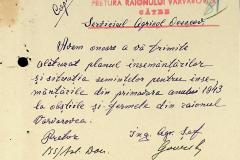 PRETURA RAIONULUI VARVAROVCA
CĂTRE
Serviciul Agricol
Avem onoare a vă trimite
alăturat planul însemânțărilor
și situația semințelor pentru însе-
mânțările din primăvara anului 1943
la obștiile și fermele din raionul
Varvarovca.
Pretor
Ing. Agr. Șef